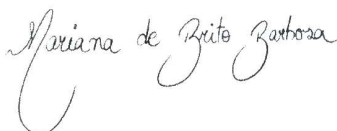 Mariana de Brito Barbosa